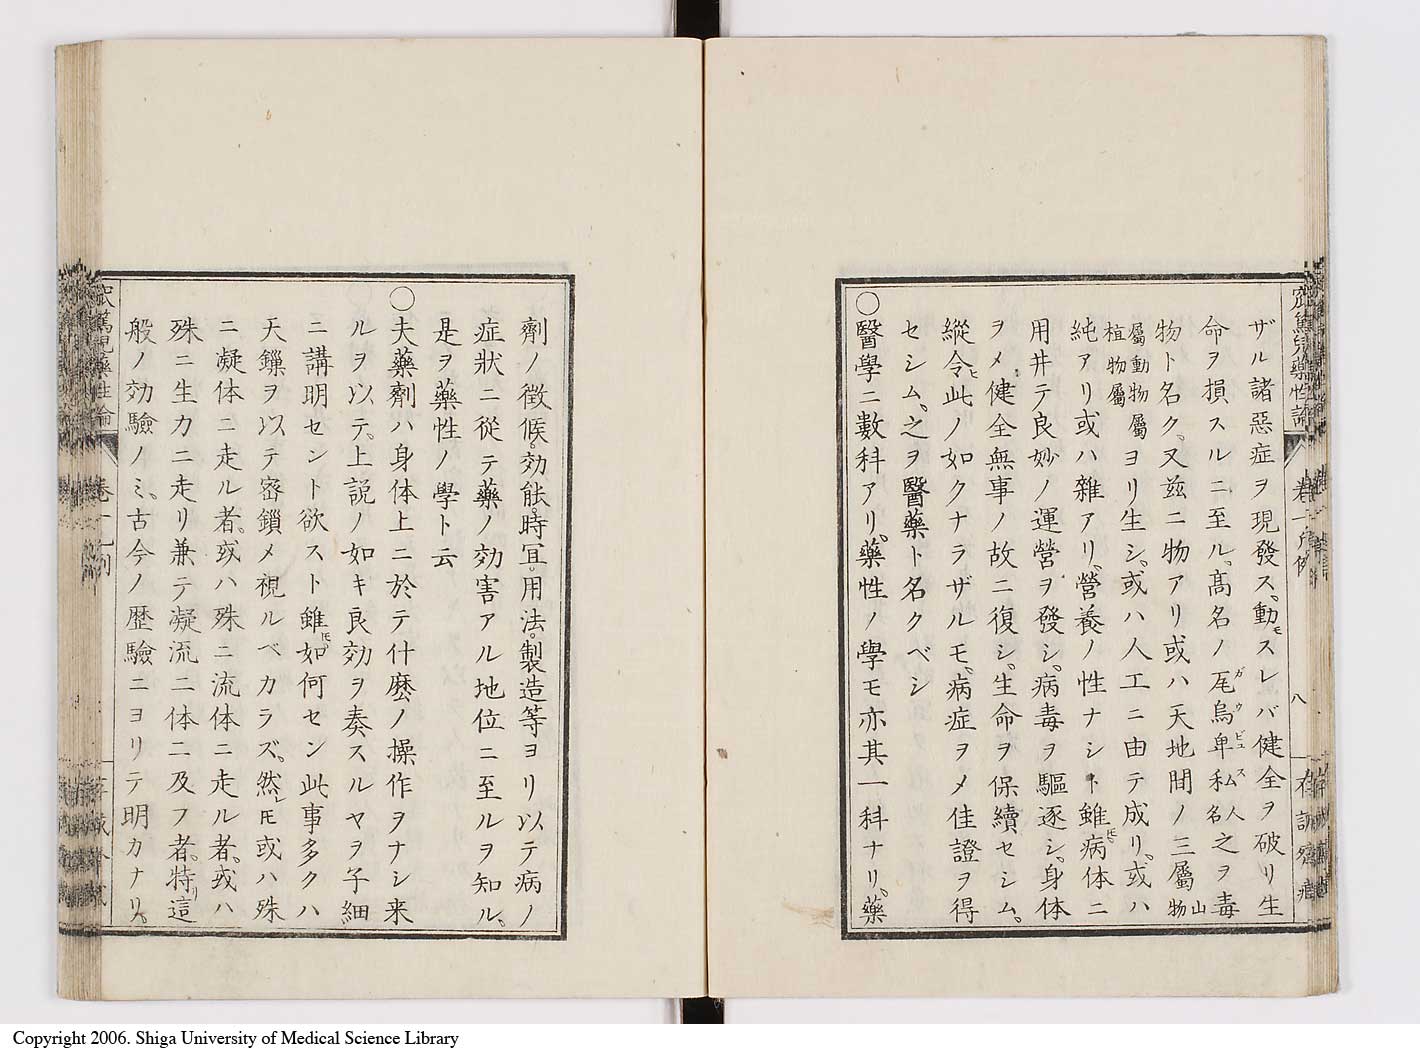 ザル諸惡症ヲ現發ス。動モスレバ健全ヲ破リ生
命ヲ損スルニ至ル。髙名ノ尾烏皐私人名之ヲ毒
物ト名ク。又茲ニ物アリ或ハ天地間ノ三屬山物
屬動物屬植物屬ヨリ生シ。或ハ人工ニ由テ成リ。或ハ
純アリ或ハ雜アリ。營養ノ性ナシト雖𪜈病体ニ
用井テ良妙ノ運營ヲ發シ。病毒ヲ驅逐シ。身体
ヲメ健全無事ノ故ニ復シ。生命ヲ保續セシム。
縱令ヒ此ノ如クナラザルモ。病症ヲメ佳證ヲ得
セシム。之ヲ醫藥ト名クベシ
〇醫學ニ數科アリ。藥性ノ學モ亦其一科ナリ。藥
劑ノ徴候。効能。時冝。用法。製造等ヨリ以テ病ノ
症狀ニ從テ藥ノ効害アル地位ニ至ルヲ知ル。
是ヲ藥性ノ學ト云
〇夫藥劑ハ身体上ニ於テ什麽ノ操作ヲナシ来
ルヲ以テ。上説ノ如キ良効ヲ奏スルヤヲ子細
ニ講明セント欲スト雖𪜈如何セン此事多クハ
天鏁ヲ以テ密鎖メ視ルベカラズ。然レ𪜈或ハ殊
ニ凝体ニ走ル者。或ハ殊ニ流体ニ走ル者。或ハ
殊ニ生力ニ走リ兼テ凝流二体ニ及フ者。特リ這
般ノ効驗ノミ。古今ノ歴驗ニヨリテ明カナリ。
卷一
八
Copyright 2006. Shiga University of Medical Science Library